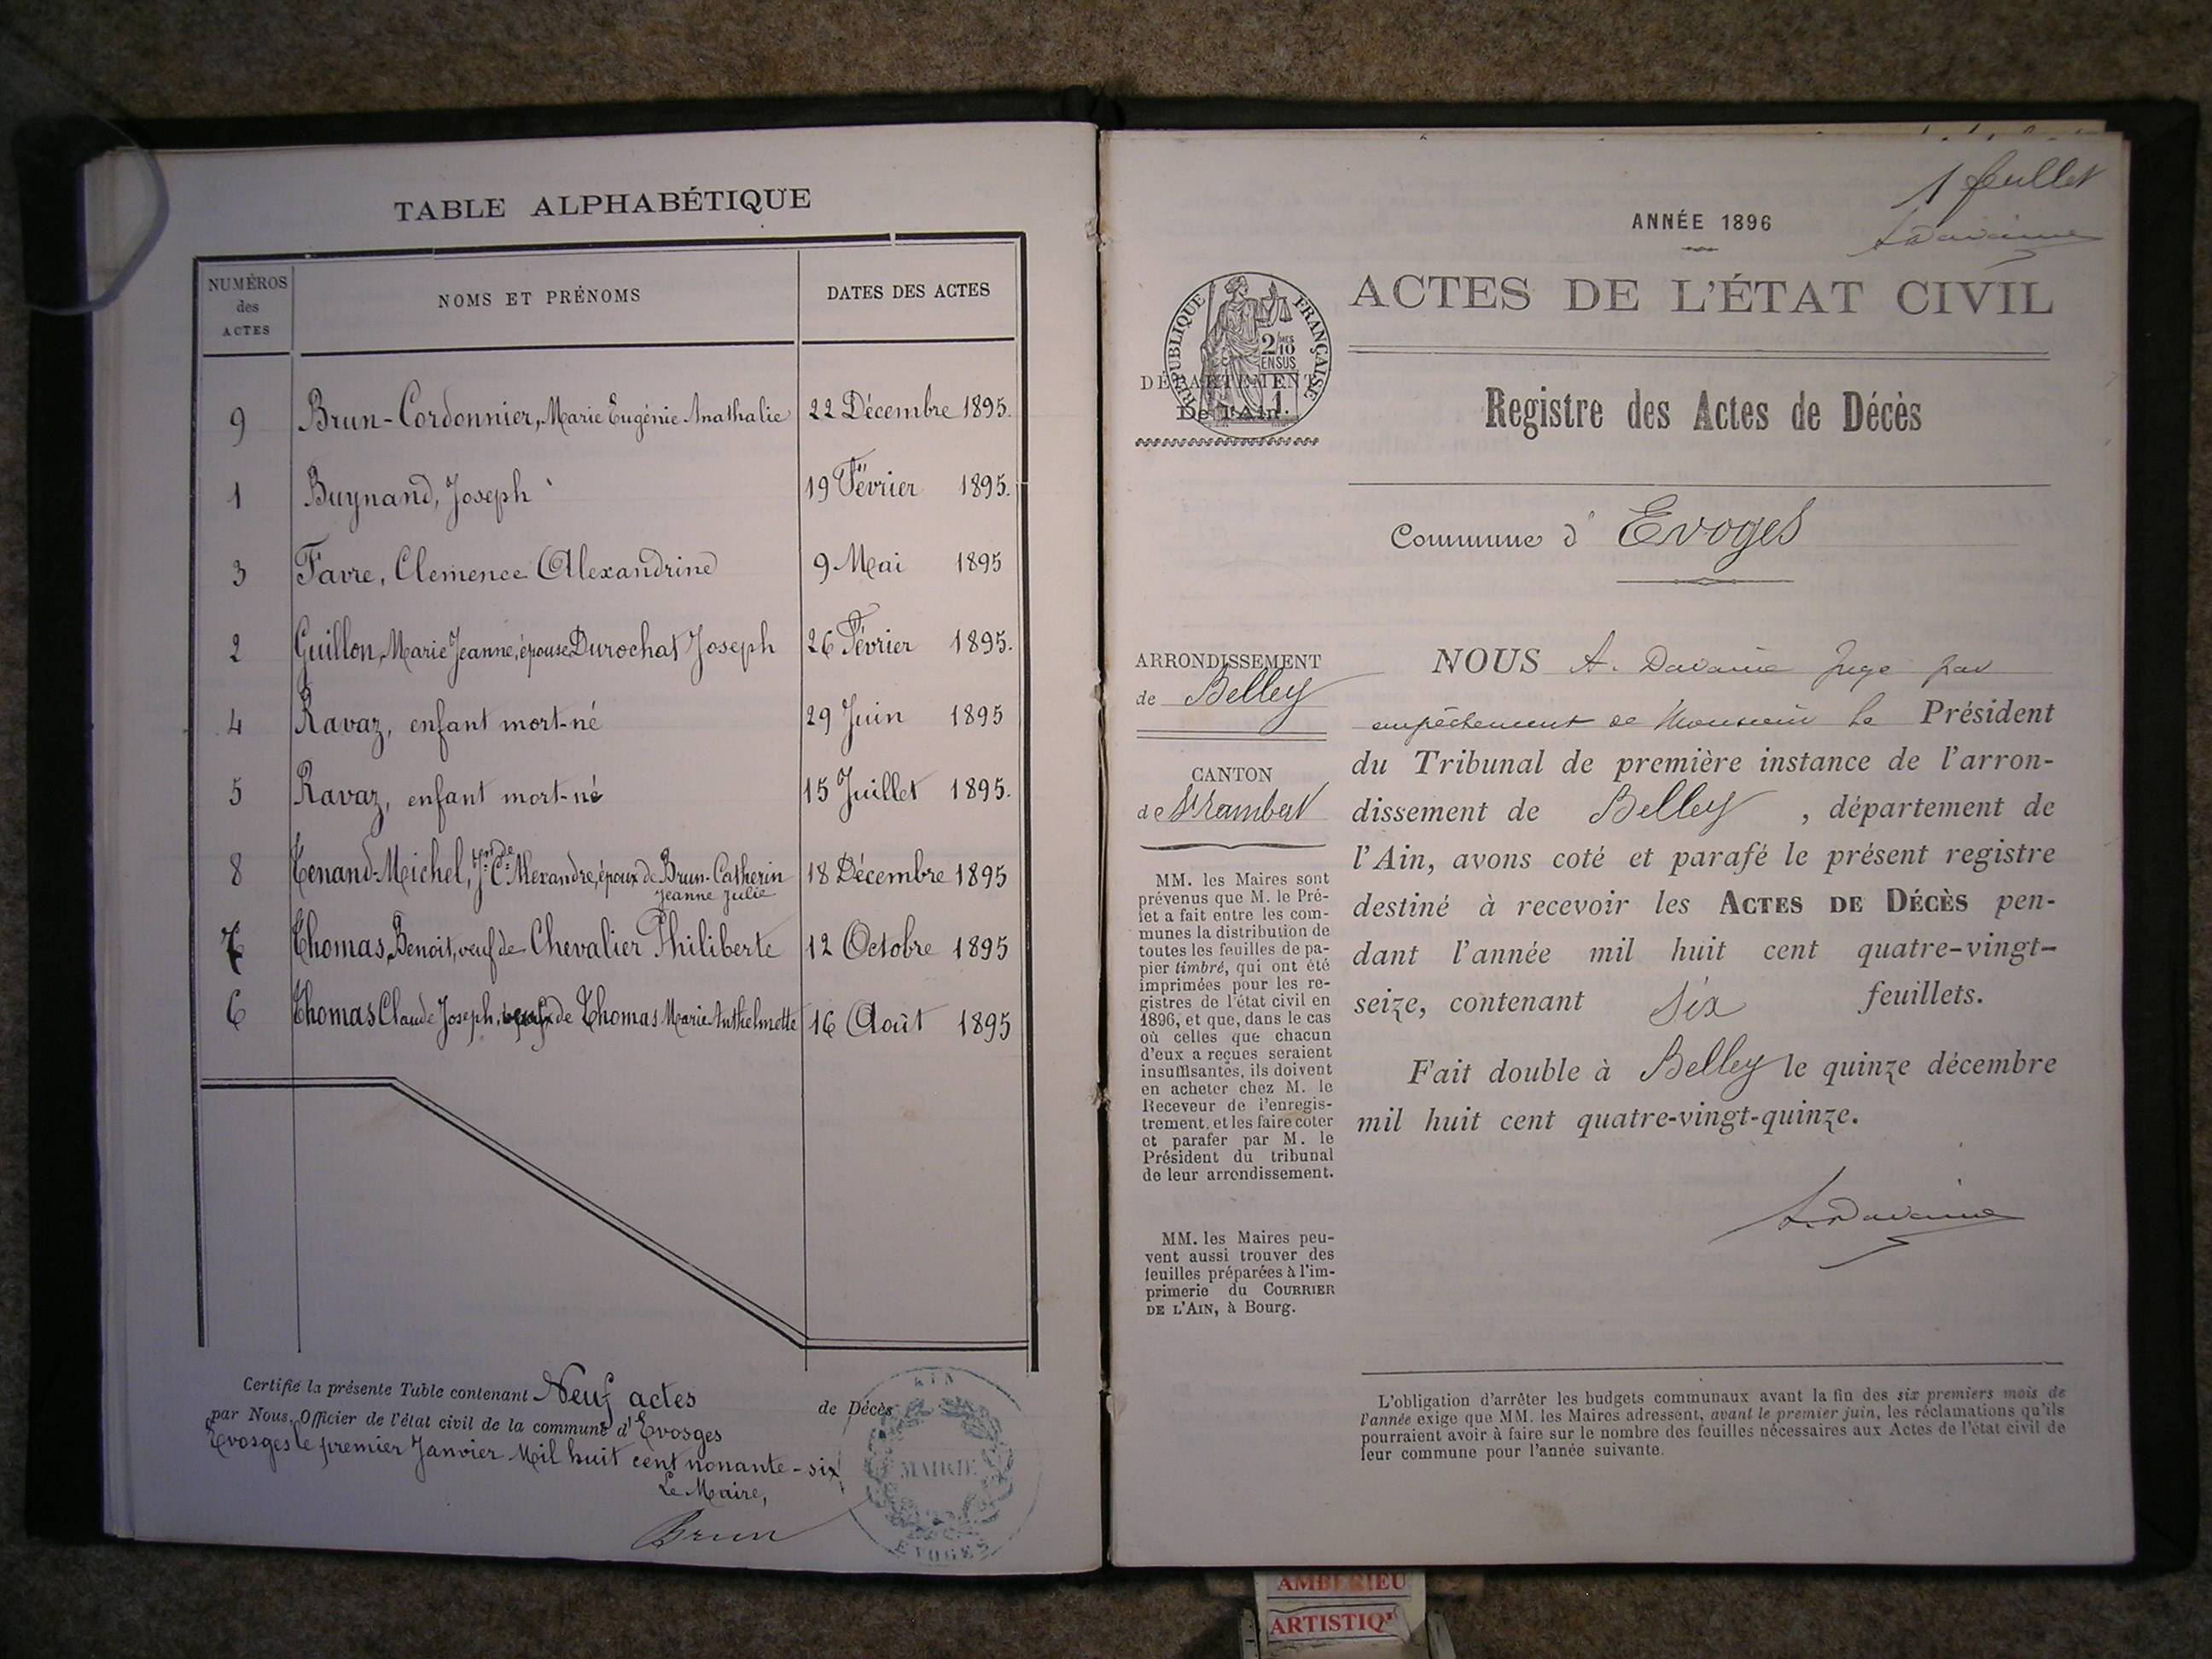 TABLE ALPHABÉTIQUE
NUMÉROS des ACTES
NOMS ET PRÉNOMS
DATES DES ACTES
9 Brun-Cordonnier, Marie Eugénie Anathalie 22 Décembre 1895.
1 Buynand, Joseph 19 Février 1895.
3 Favre, Clemence Alexandrine 9 Mai 1895
2 Guillon, Marie Jeanne, épouse Durochat Joseph 26 Février 1895.
4 Ravaz, enfant mort-né 29 Juin 1895
5 Ravaz, enfant mort-né 15 Juillet 1895.
8 Tenand-Michel, Alexandre, époux de Brun-Catherin 18 Décembre 1895
Jeanne Julie
7 Thomas, Benoit, veuf de Chevalier Philiberte 12 Octobre 1895
6 Thomas Claude Joseph, de Thomas Marie Anthelmette 16 Août 1895
Certifié la présente Table contenant Neuf actes de Décès
par Nous, Officier de l'état civil de la commune d'Evosges
Evosges le premier Janvier Mil huit cent nonante-six
Le Maire,
Brun
AIN
MAIRIE
EVOGES
1 feuillet
A Davaine
ANNÉE 1896
ACTES DE L'ÉTAT CIVIL
RÉPUBLIQUE FRANÇAISE
2/10 MES
EN SUS
DÉPARTEMENT
De l'Ain.
Registre des Actes de Décès
Commune d' Evoges
ARRONDISSEMENT
de Belley
CANTON
de St Rambert
MM. les Maires sont
prévenus que M. le Pré-
fet a fait entre les com-
munes la distribution de
toutes les feuilles de pa-
pier timbré, qui ont été
imprimées pour les re-
gistres de l'état civil en
1896, et que, dans le cas
où celles que chacun
d'eux a reçues seraient
insuffisantes, ils doivent
en acheter chez M. le
Receveur de l'enregis-
trement, et les faire coter
et parafer par M. le
Président du tribunal
de leur arrondissement.
MM. les Maires peu-
vent aussi trouver des
feuilles préparées à l'im-
primerie du COURRIER
DE L'AIN, à Bourg.
NOUS A. Davaine Juge par
empêchement de Monsieur le Président
du Tribunal de première instance de l'arron-
dissement de Belley, département de
l'Ain, avons coté et parafé le présent registre
destiné à recevoir les ACTES DE DÉCÈS pen-
dant l'année mil huit cent quatre-vingt-
seize, contenant six feuillets.
Fait double à Belley le quinze décembre
mil huit cent quatre-vingt-quinze.
A Davaine
L'obligation d'arrêter les budgets communaux avant la fin des six premiers mois de
l'année exige que MM. les Maires adressent, avant le premier juin, les réclamations qu'ils
pourraient avoir à faire sur le nombre des feuilles nécessaires aux Actes de l'état civil de
leur commune pour l'année suivante.
AMBERIEU
ARTISTIQ